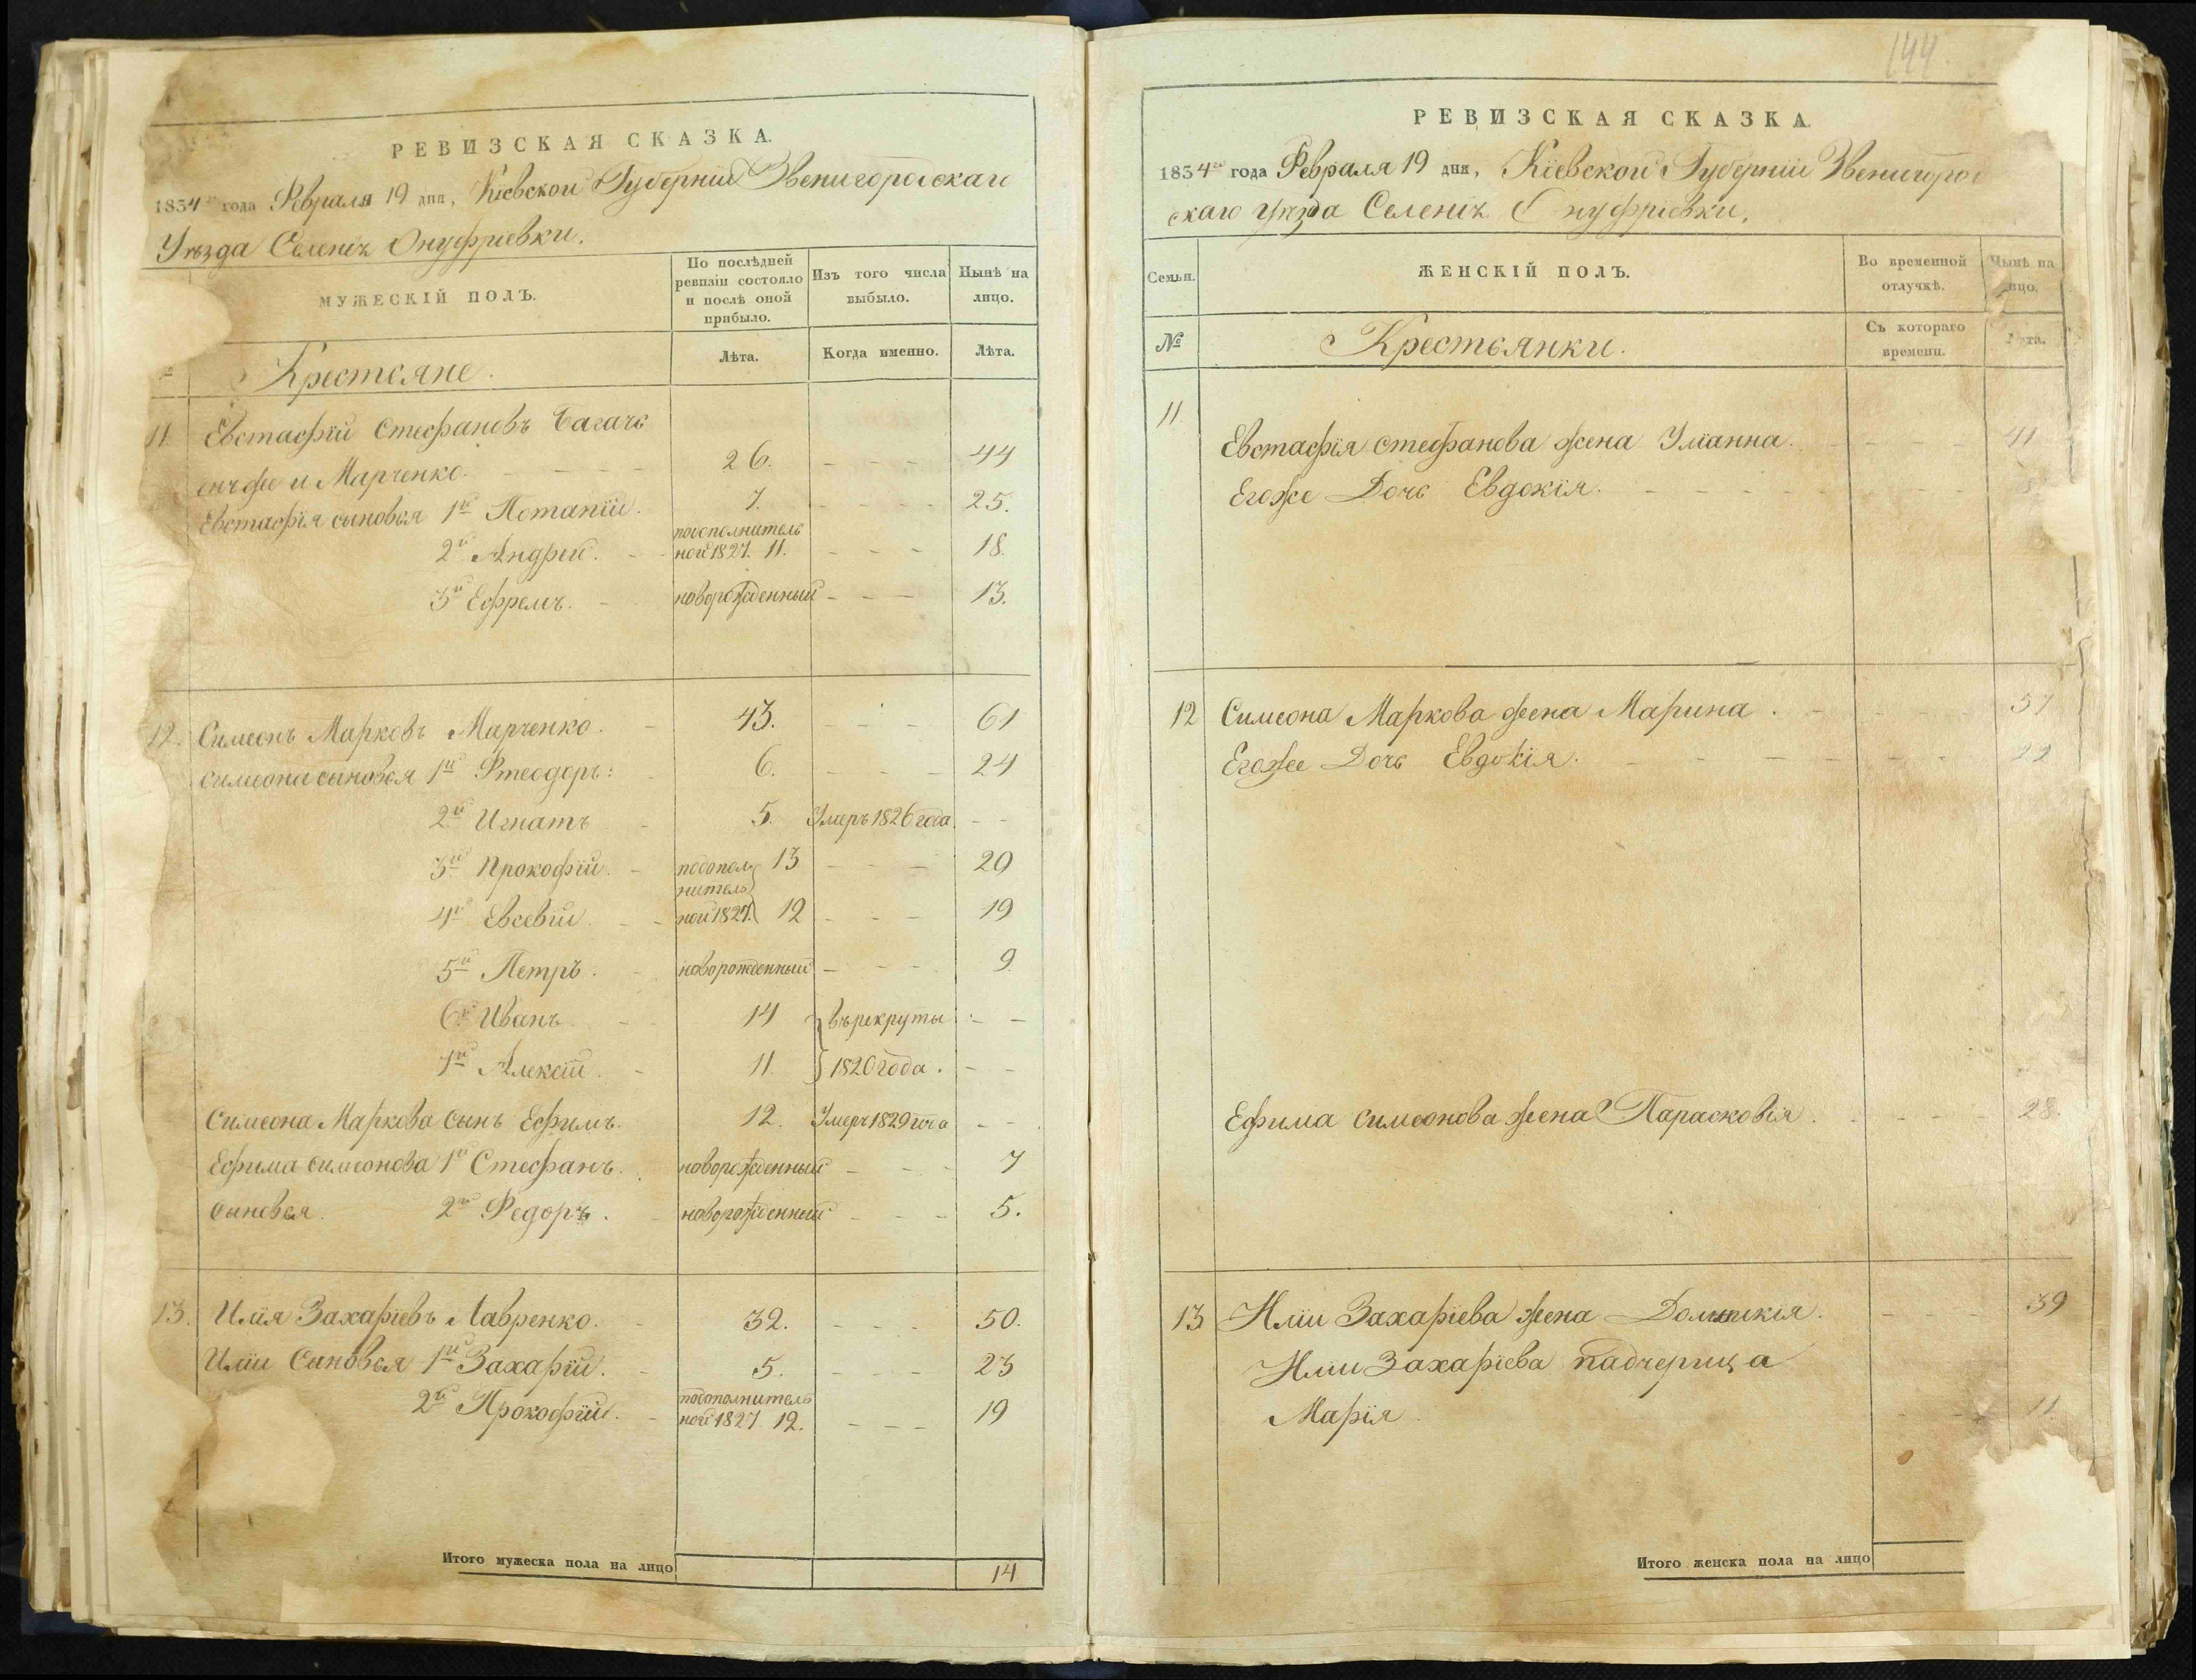 РЕВИЗСКАЯ СКАЗКА.
1834го года Февраля 19 дня, Кіевской Губерніи Звенигородскаго
Уѣзда Селенія Онуфріевки.
МУЖЕСКІЙ ПОЛЪ.
По послѣдней ревизіи состояло и послѣ оной прибыло.
Изъ того числа выбыло.
Нынѣ на лицо.
Крестьяне.
Лѣта.
Когда именно.
Лѣта.
11. Евстафій Стефановъ Багачь
онъ же и Марченко. 26. 44
Евстафія сыновья 1й Потапій. 7. 25.
2й Андрій. подополнительной 1827. 11. 18.
3й Ефремъ. новорожденный 13.
12. Симеонъ Марковъ Марченко. 43. 61
Симеона сыновья 1й Фтеодоръ: 6. 24
2й Игнатъ 5. Умеръ 1826 года.
3й Прокофій. подополнительной 1827. 13 20
4й Евсевій. 12 19
5й Петръ. новорожденный 9.
6й Иванъ 14 въ рекруты
7й Алексій. 11. 1820 года.
Симеона Маркова сынъ Ефимъ. 12. Умеръ 1829 года
Ефима Симеонова 1й Стефанъ. новорожденный 7
сыновья. 2й Федоръ. новорожденный 5.
13. Илія Захаріевъ Лавренко. 32. 50.
Иліи Сыновья 1й Захарій. 5. 23
2й Прокофій. подополнительной 1827 12. 19
Итого мужеска пола на лицо 14
144
РЕВИЗСКАЯ СКАЗКА.
1834го года Февраля 19 дня, Кіевской Губерніи Звенигород
скаго Уѣзда Селенія Онуфріевки.
Семьи.
ЖЕНСКІЙ ПОЛЪ.
Во временной отлучкѣ.
Нынѣ на лицо.
№
Крестьянки.
Съ котораго времени.
Лѣта.
11 Евстафія Стефанова жена Уліанна. 41
Егоже Дочь Евдокія.
12 Симеона Маркова жена Марина. 57
Егоже Дочь Евдокія. 22
Ефима Симеонова жена Парасковія. 28.
13 Иліи Захаріева жена Домникія. 39
Иліи Захаріева падчерица
Марія 11
Итого женска пола на лицо